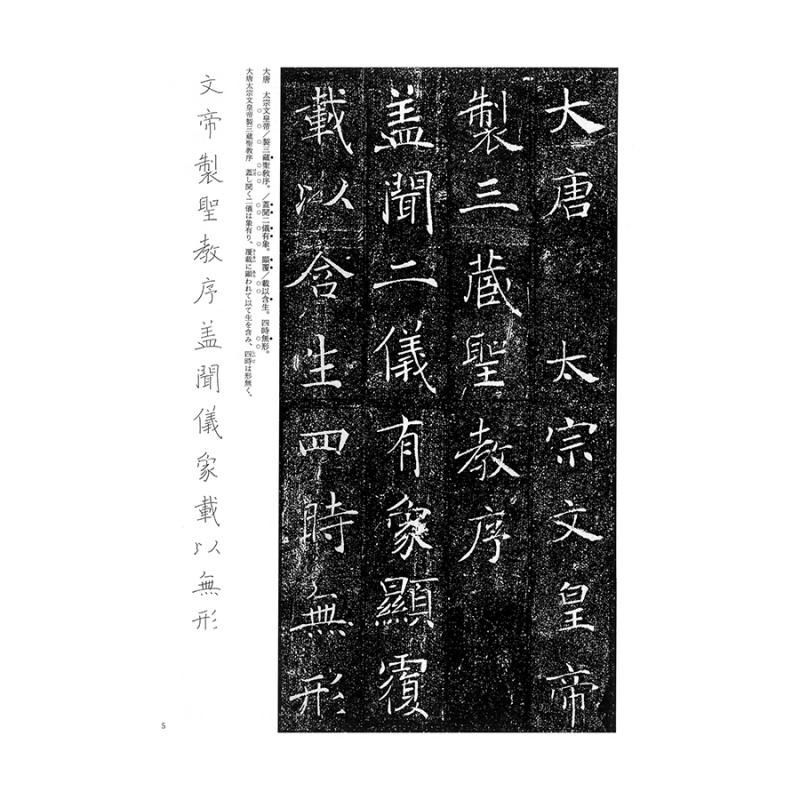 大唐 太宗文皇帝
製三蔵聖教序
盖聞二儀有象顯覆
載以含生四時無形
大唐 太宗文皇帝／製三蔵聖教序。／蓋聞二儀有象。顯覆／載以含生。四時無形。
大唐太宗文皇帝製三蔵聖教序 蓋し聞く二儀は象有り、覆載に顕われて以て生を含み、四時は形無く、
文帝製聖教序盖聞儀象載以無形
5